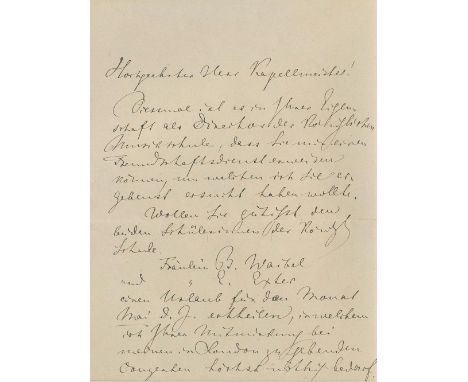 Hochgeehrter Herr Kapellmeister!
Diesmal ist es in Ihrer Eigen
schaft als Director der Königlichen
Musikschule, dass Sie mir einen
Freundschaftsdienst erweisen
können, um welchen ich Sie er
gebenst ersucht haben wollte.
Wollen Sie gütigst den
beiden Schülerinnen der Königl
Schule
Fräulein B. Waibel
und " E. Exter
einen Urlaub für den Monat
Mai d. J. ertheilen, in welchem
ich Ihrer Mitwirkung bei
meinen in London zu gebenden
Concerten höchst nöthig bedarf.